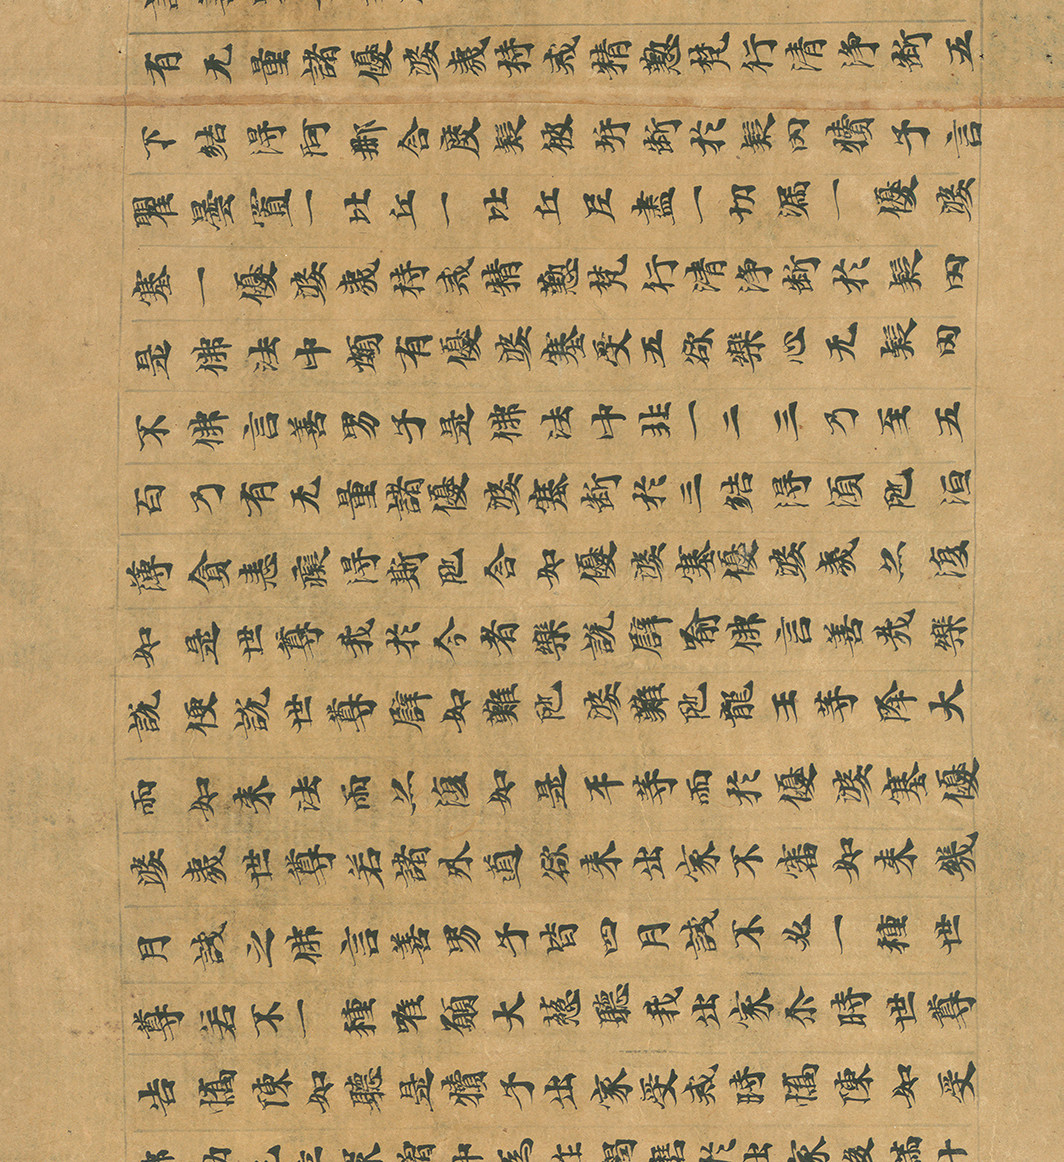 有无量諸優婆夷持戒精懃梵行清淨斷五
下結得阿那含度疑彼岸斷於疑网犢子言
瞿曇置一比丘一比丘尼盡一切漏一優婆
塞一優婆夷持戒精懃梵行清淨斷於疑网
是佛法中頗有優婆塞受五欲樂心无疑网
不佛言善男子是佛法中非一二三乃至五
百乃有无量諸優婆塞斷於三結得須陁洹
薄貪恚癡得斯陁含如優婆塞優婆夷亦復
如是世尊我於今者樂說譬喻佛言善哉樂
說便說世尊譬如難陁婆難陁龍王等降大
雨如来法雨亦復如是平等雨於優婆塞優
婆夷世尊若諸外道欲来出家不審如来幾
月試之佛言善男子皆四月試不必一種世
尊若不一種唯願大慈聽我出家尒時世尊
告憍陳如聽是犢子出家受戒時憍陳如受